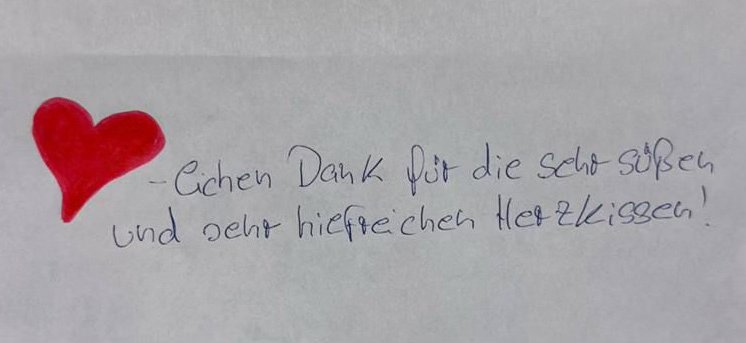 -lichen Dank für die sehr süßen
und sehr hilfreichen Herzkissen!